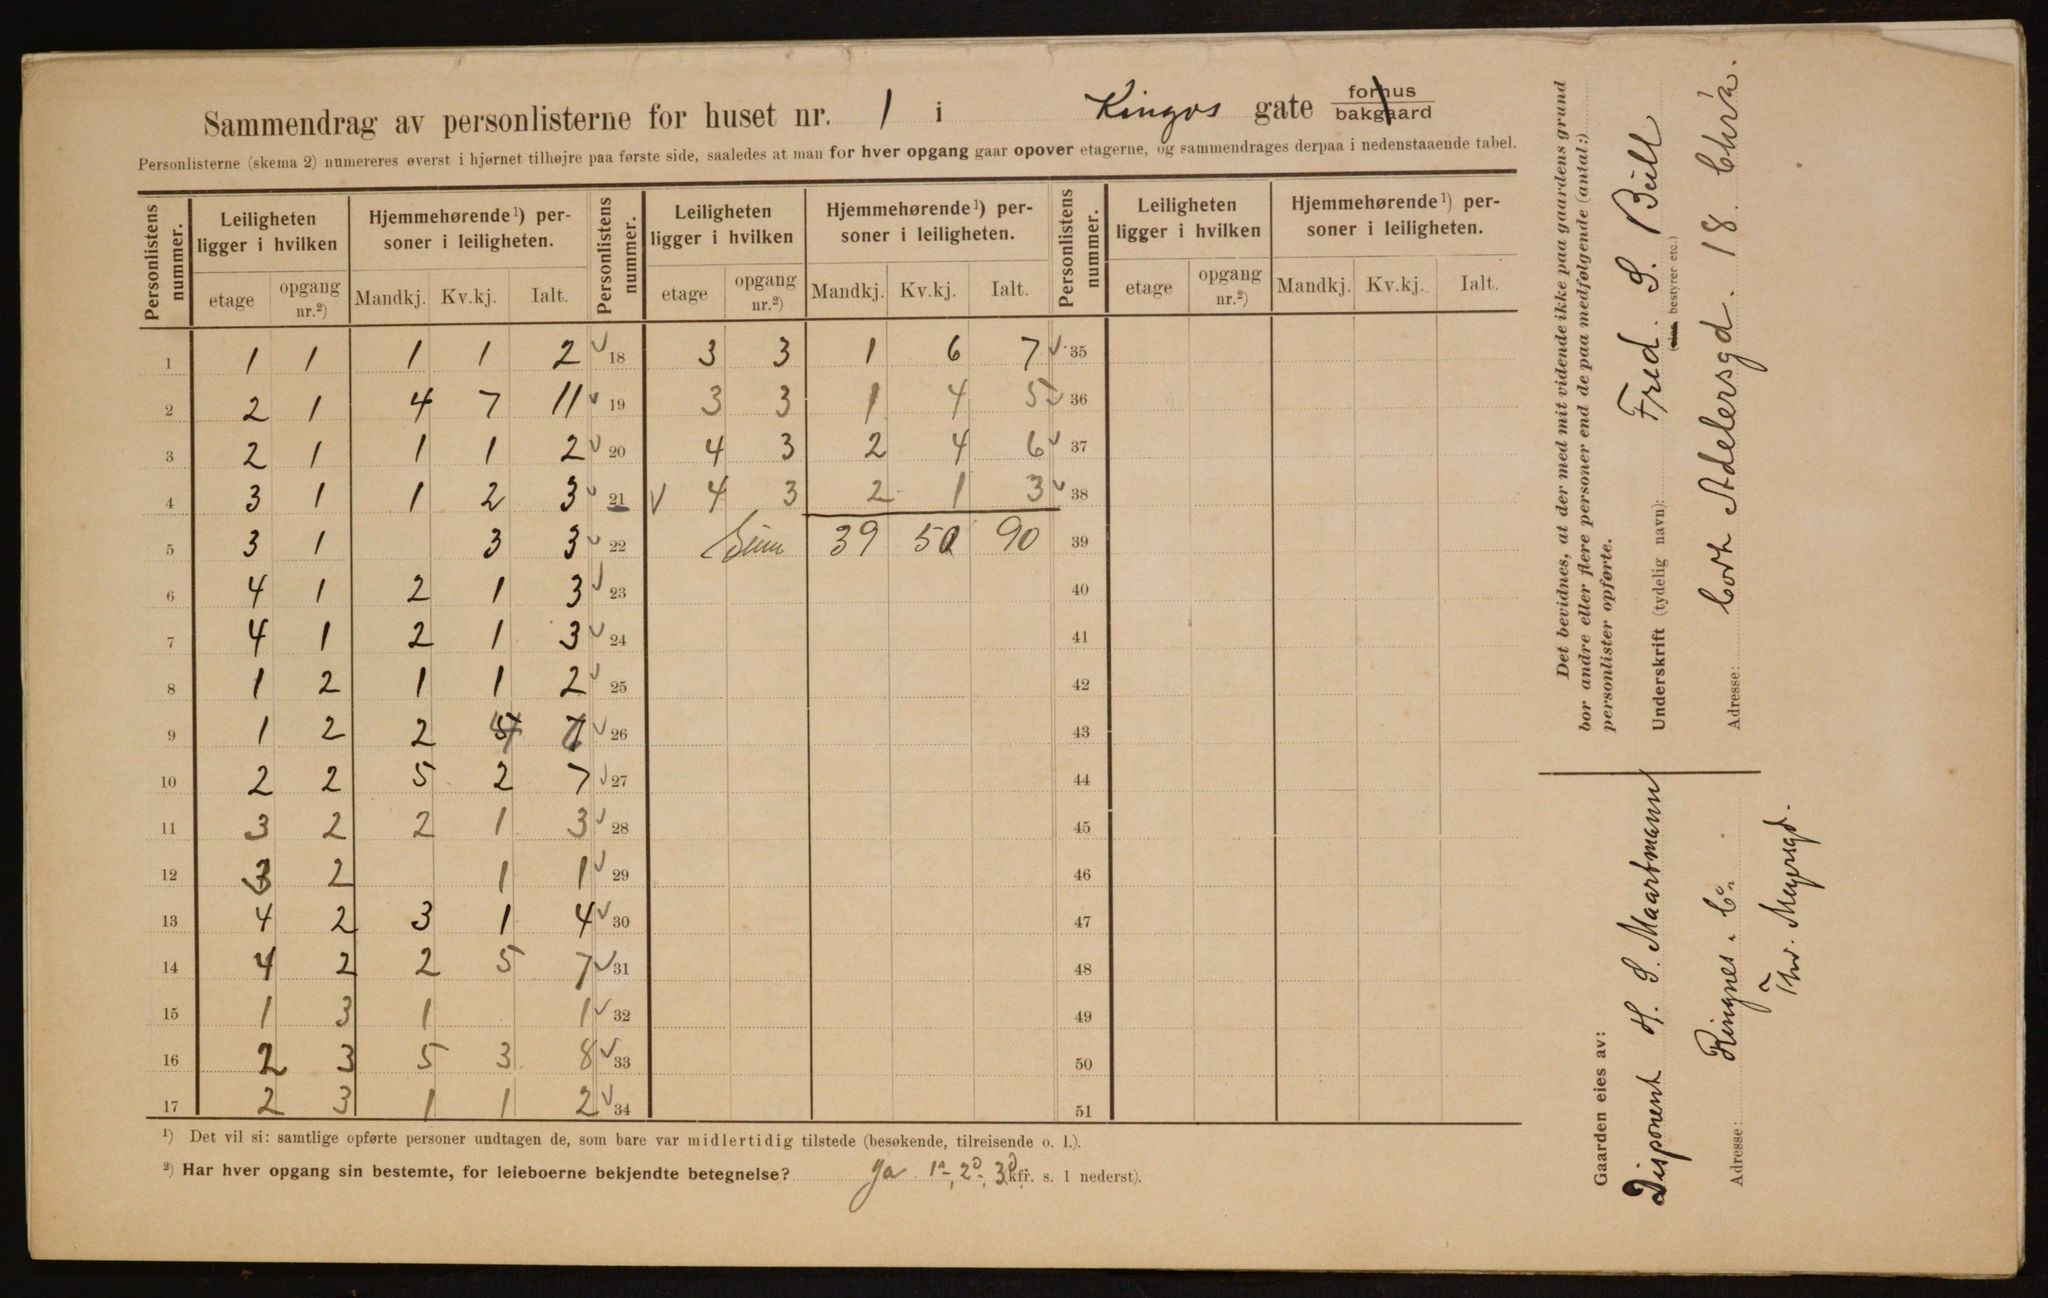 Sammendrag av personlisterne for huset nr. 1 i Kingos gate forhus
bakgaard
Personlisterne (skema 2) numereres øverst i hjørnet tilhøjre paa første side, saaledes at man for hver opgang gaar opover etagerne, og sammendrages derpaa i nedenstaaende tabel.
Personlistens nummer. Leiligheten ligger i hvilken Hjemmehørende¹) personer i leiligheten. Personlistens nummer. Leiligheten ligger i hvilken Hjemmehørende¹) personer i leiligheten. Personlistens nummer. Leiligheten ligger i hvilken Hjemmehørende¹) personer i leiligheten.
etage opgang nr.²) Mandkj. Kv.kj. Ialt. etage opgang nr.²) Mandkj. Kv.kj. Ialt. etage opgang nr.²) Mandkj. Kv.kj. Ialt.
1 1 1 1 1 2 ✓ 18 3 3 1 6 7 ✓ 35
2 2 1 4 7 11 ✓ 19 3 3 1 4 5 ✓ 36
3 2 1 1 1 2 ✓ 20 4 3 2 4 6 ✓ 37
4 3 1 1 2 3 ✓ 21 ✓ 4 3 2 1 3 ✓ 38
5 3 1 3 3 ✓ 22 Sum 39 50 90 39
6 4 1 2 1 3 ✓ 23 40
7 4 1 2 1 3 ✓ 24 41
8 1 2 1 1 2 ✓ 25 42
9 1 2 2 ✓ 26 43
10 2 2 5 2 7 ✓ 27 44
11 3 2 2 1 3 ✓ 28 45
12 3 2 1 1 ✓ 29 46
13 4 2 3 1 4 ✓ 30 47
14 4 2 2 5 7 ✓ 31 48
15 1 3 1 1 ✓ 32 49
16 2 3 5 3 8 ✓ 33 50
17 2 3 1 1 2 ✓ 34 51
¹) Det vil si: samtlige opførte personer undtagen de, som bare var midlertidig tilstede (besøkende, tilreisende o. l.).
²) Har hver opgang sin bestemte, for leieboerne bekjendte betegnelse? Ja 1a, 2d, 3d (kfr. s. 1 nederst).
Det bevidnes, at der med mit vidende ikke paa gaardens grund
bor andre eller flere personer end de paa medfølgende (antal:)
personlister opførte.
Underskrift (tydelig navn): Fred. S. Bull
bestyrer etc.)
Adresse: Cort Adelersgd. 18 Chra.
Gaarden eies av:
Disponent H. S. Maartmann
Adresse: Ringnes & Co.
Thv. Meyersgd.